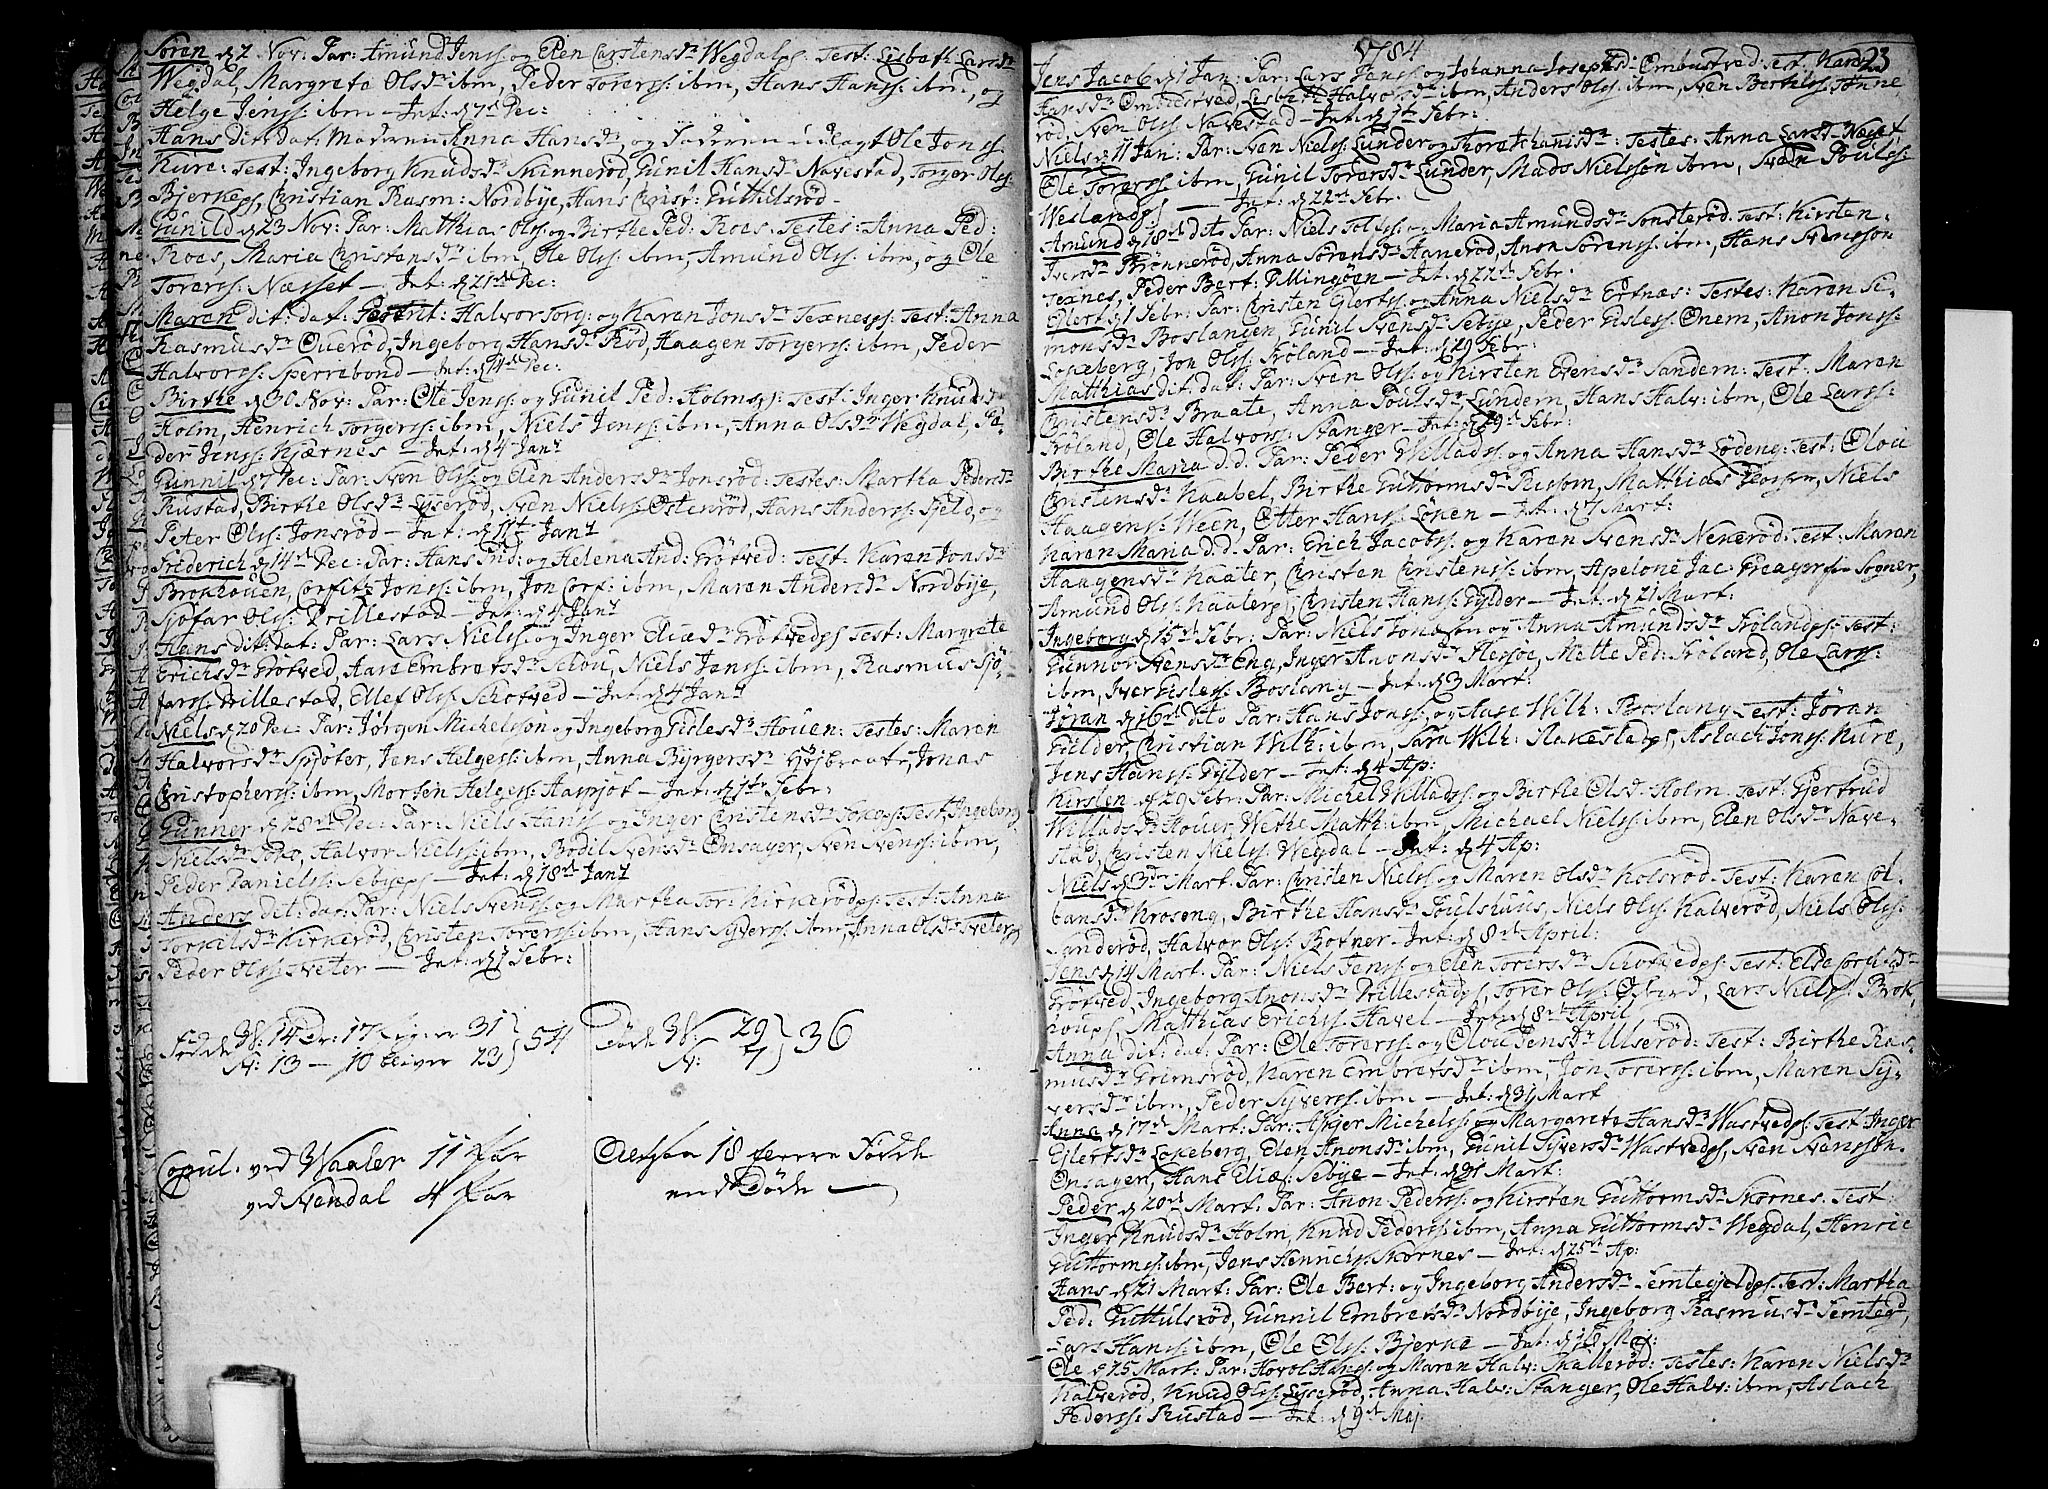 Søren d 2 Nov: Par: Amund Jenss: og Elen Carstensdr Wegdal Test: Lisbeth Larsdr
Wegdal, Margrete Olsdr ibm, Peder Torerss: ibm, Hans Hanss: ibm, og
Helge Jenss: ibm — Int: d 7 Dec:
Hans dit: dat: Moderen Anna Hansdr, og Faderen udlagt Ole Jonss:
Kure: Test: Ingeborg Knudsdr Skinnerød, Gunil Hansdr Navestad, Torger Olss:
Bjerke, Christian Rasm: Nordbye, Hans Christ: Guthulsrød —
Gunild d 23 Nov: Par: Matthias Olss: og Birthe Ped: Roes. Testes: Anna Ped:
Roes, Maria Christensdr ibm, Ole Olss: ibm, Amund Olss: ibm, og Ole
Torerss: Næsset — Int: d 21 Dec:
Maren dit: dat: Halvor Torg: og Karen Jonsdr Texnes Test: Anna
Rasmusdr Querød, Ingeborg Hansdr Rød, Haagen Torgerss: ibm, Peder
Halvorss: Sperrebond — Int: d 14 Dec:
Birthe d 30 Nov: Par: Ole Jenss: og Gunil Ped: Holm Test: Inger Knudsdr
Holm, Henrich Torgerss: ibm, Niels Jenss: ibm, Anna Olsdr Wegdal, Pe-
der Jenss: Kjærnes — Int: d 4 Jan
Gunnil d 7 Dec: Par: Sven Olss: og Elen Andersdr Jonsrød: Testes: Martha Pedersdr
Rustad, Birthe Olsdr Lyserød, Sven Nielss: Østenrød, Hans Anderss: Fjeld, og
Peter Olss: Jonsrød — Int: d 11 Jan
Frederich d 14 Dec: Par: Hans Fred: og Helena And: Grøtved: Test: Karen Jonsdr
Brokhouen, Corfitz Jonss: ibm, Jon Corf: ibm, Maren Andersdr Nordbye,
Sjofar Olss: Drillestad — Int: d 4 Jan
Hans dit: dat: Par: Lars Nielss: og Inger Eliædr Grøtved Test: Margrete
Erichsdr Grøtved, Aase Embretsdr Skou, Niels Jenss: ibm, Rasmus Sjø-
farss: Drillestad, Ellef Olss: Schotved — Int: d 4 Jan
Niels d 20 Dec: Par: Jørgen Michelsson og Ingeborg Gislesdr Houen: Testes: Maren
Halvorsdr Spjøter, Jens Helgess: ibm, Anna Byrgersdr Højbraate, Jonas
Christopherss: ibm, Morten Helgess: — Int: d 1 Febr:
Gunner d 28 Dec: Par: Niels Hanss: og Inger Christensdr Foko Test: Ingeborg
Nielsdr Foko, Halvor Nielss: ibm, Bodil Svensdr Onsager, Sven Svenss: ibm,
Peder Danielss: Sebye — Int: d 18 Jan
Anders dit: dat: Par: Niels Svens: og Martha Tor: Kirkerød Test: Anna
Torkilsdr Kirkerød, Christen Torerss: ibm, Hans Syverss: ibm, Anna Olsdr Tveter
Peder Olss: Tveter — Int: d 1 Febr:
Fødde W: 14 Dr: 17 Piger 31 } 54
N: 13 — 10 bliver 23
Døde W: 29 } 36
N: 7
Copul: ved Waaler 11 Par
ved Svendal 4 Par
Altsaa 18 fleere Fødde
end Døde —
1784
23
Jens Jacob d 1 Jan: Par: Lars Hanss: og Johanna Josephsd: Ombustved: Test: Karen
Hansdr Ombustved, Lisbeth Halvorsdr ibm, Anders Olss: ibm, Sven Bertelss: Tønne-
rød, Sven Olss: Navestad — Int: d 1 Febr:
Niels d 11 Jan: Par: Sven Nielss: Lunder og Thore Johanisdr: Testes: Anna Larsdr
Ole Torerss: ibm, Gunil Torersdr Lunder, Mads Nielssøn ibm, Sven Poulss:
Wesland — Int: d 22 Febr:
Amund d 18 dito Par: Niels Tolss: og Maria Amundsdr Sonsterød. Test: Kirsten
Iversdr Brønnerød, Anna Sørensdr Haнerød, Anon Sørenss: ibm, Hans Svensson
Texnes, Peder Bert: Mingøen — Int: d 22 Febr:
Eilert d 1 Febr: Par: Christen Eilertss: og Anna Nielsdr Ertnæs: Testes: Karen Si-
monsdr Boslangen, Gunil Svensdr Sebye, Peder Gisless: Onem, Anon Jonss:
Lokeberg, Jon Olss: Frøland — Int: d 29 Febr:
Matthias dit: dat: Par: Sven Olss: og Kirsten Evensdr Sandem: Test: Maren
Christensdr Braate, Anna Poulsdr Lundem, Hans Halv: ibm, Ole Larss:
Frøland, Ole Halvorss: Stanger — Int: d 29 Febr:
Birthe Maria d. d. Par: Peder Willadss: og Anna Hansdr Lødeng: Test: Olou
Christensdr Kaabel, Birthe Guttormsdr Rissom, Matthias, Niels
Haagenss: Ween, Otter Hanss: Løken — Int: d 7 Mart:
Karen Maria d. d. Par: Erich Jacobss: og Karen Svensdr Nekerød: Test: Maren
Haagensdr Kaater, Christen Christenss: ibm, Apelone Jac: Sogner,
Amund Olss: Kaater, Christen Hanss: Gylder — Int: d 21 Mart:
Ingeborg d 15 Febr: Par: Niels Jonsson og Anna Amundsdr Frøland Test:
Gunnor Svensdr Eng, Inger Anonsdr, Mette Ped: Frøland, Ole Larss:
ibm, Iver Gisless: Boslang — Int: d 3 Mart:
Jøran d 16 dito Par: Hans Jonss: og Aase Wilh: Boslang Test: Jøran
Gylder, Christian Wilh: ibm, Sara Wilh: Rakestad, Aslach Jonss: Kure,
Jens Hanss: Gylder — Int: d 4 Ap:
Kirsten d 29 Febr: Par: Michel Willadss: og Birthe Olsdr Holm Test: Gjertrud
Willadsdr Houer, Wethe Matth: ibm, Michael Nielss: ibm, Elen Olsdr Nave-
stad, Christen Nielss: Wegdal — Int: d 4 Ap:
Niels d 3 Mart: Par: Christen Nielss: og Maren Olsdr Kolsrød. Test: Karen Col-
bansdr Kroseng, Birthe Hansdr Poulshuus, Niels Olss: Kalverød, Niels Olss:
Sanderød, Halvor Olss: Botner — Int: d 8 April:
Jens d 14 Mart: Par: Niels Jenss: og Elen Torersdr Schotved Test: Else Corfitzdr
Grøtved, Ingeborg Anonsdr Drillestad, Torer Olss: Østerød, Lars Nielss: Brok-
houp, Matthias Erichss: Havel — Int: d 8 April
Anna dit: dat: Par: Ole Torerss: og Olou Jensdr Ulserød: Test: Birthe Ras-
musdr Grimsrød, Karen Embretsdr ibm, Jon Torerss: ibm, Maren Sy-
versdr ibm, Peder Syverss: ibm — Int: d 31 Mart
Anna d 17 Mart: Par: Asger Michelss: og Margarete Hansdr Wastved Test: Inger
Eilertsdr Lokeberg, Elen Anonsdr ibm, Gunil Syversdr Wastved, Sven Svensson
Onsagen, Hans Eliæs: Sebye — Int: d 25 Mart:
Peder d 20 Mart: Par: Anon Pederss: og Kirsten Guttormsdr Skornes. Test:
Inger Knudsdr Holm, Knud Pederss: ibm, Anna Guttormsdr Wegdal, Henric
Guttormss: ibm, Jens Henrichs: Skornes — Int: d 25 Ap:
Hans d 21 Mart: Par: Ole Bert: og Ingeborg Andersdr Femtegjeld Test: Martha
Ped: Guthulsrød, Gunnil Embretsdr Nordbye, Ingeborg Rasmusdr Femtegd,
Lars Hanss: ibm, Ole Olss: Bjerke — Int: d 16 Maj:
Ole d 25 Mart: Par: Hovol Hanss: og Maren Halv: Skallerød: Testes: Karen Nielsdr
Kalverød, Knud Olss: Lyserød, Anna Halv: Stanger, Ole Halv: ibm, Aslach
Pederss: Rustad — Int: d 9 Maj